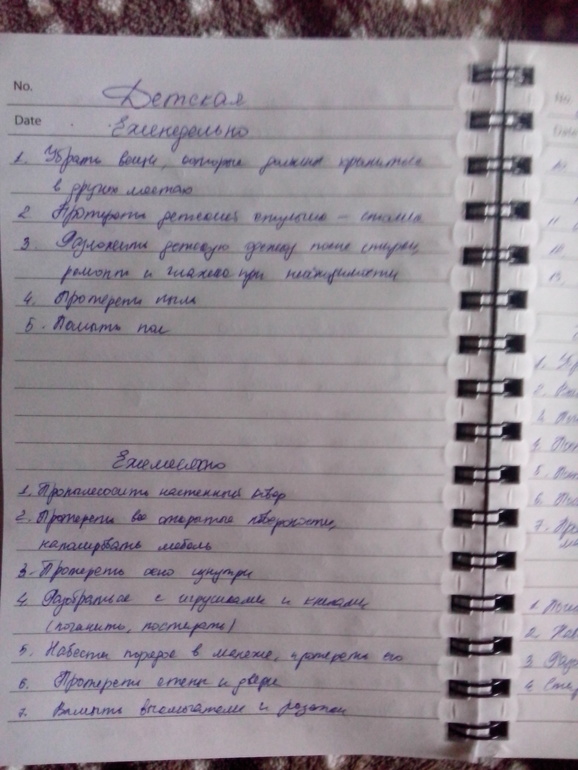 No.
Детская
Date
Еженедельно
1. Убрать вещи, которые должны храниться
в других местах
2 Протереть детский стульчик - столик
3. Разложить детскую одежду после стирки,
ремонт и глажка при необходимости
4. Протереть пыль
5. Помыть пол
Ежемесячно
1. Пропылесосить настенный ковер
2. Протереть все открытые поверхности,
наполировать мебель
3. Протереть окно изнутри
4. Разобраться с игрушками и книгами
(починить, постирать)
5. Навести порядок в манеже, протереть его
6. Протереть стены и двери
7. Вымыть выключатели и розетки